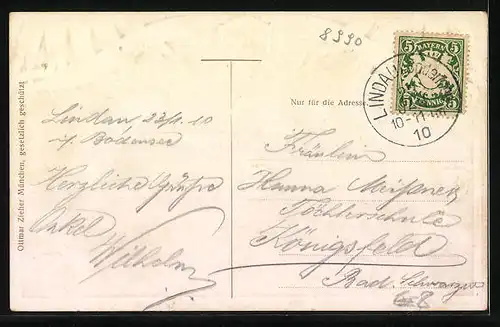 8990
5 BAYERN 5
5 PFENNIG 5
LINDAU
10-11
10
Nur für die Adresse
Ottmar Zieher München, gesetzlich geschützt
Lindau 23/1. 10
i/. Bodensee
Herzliche Grüße
Onkel
Wilhelm
Fräulein
Hanna
Töchterschule
Königsfeld
Bad. Schwarzw
8